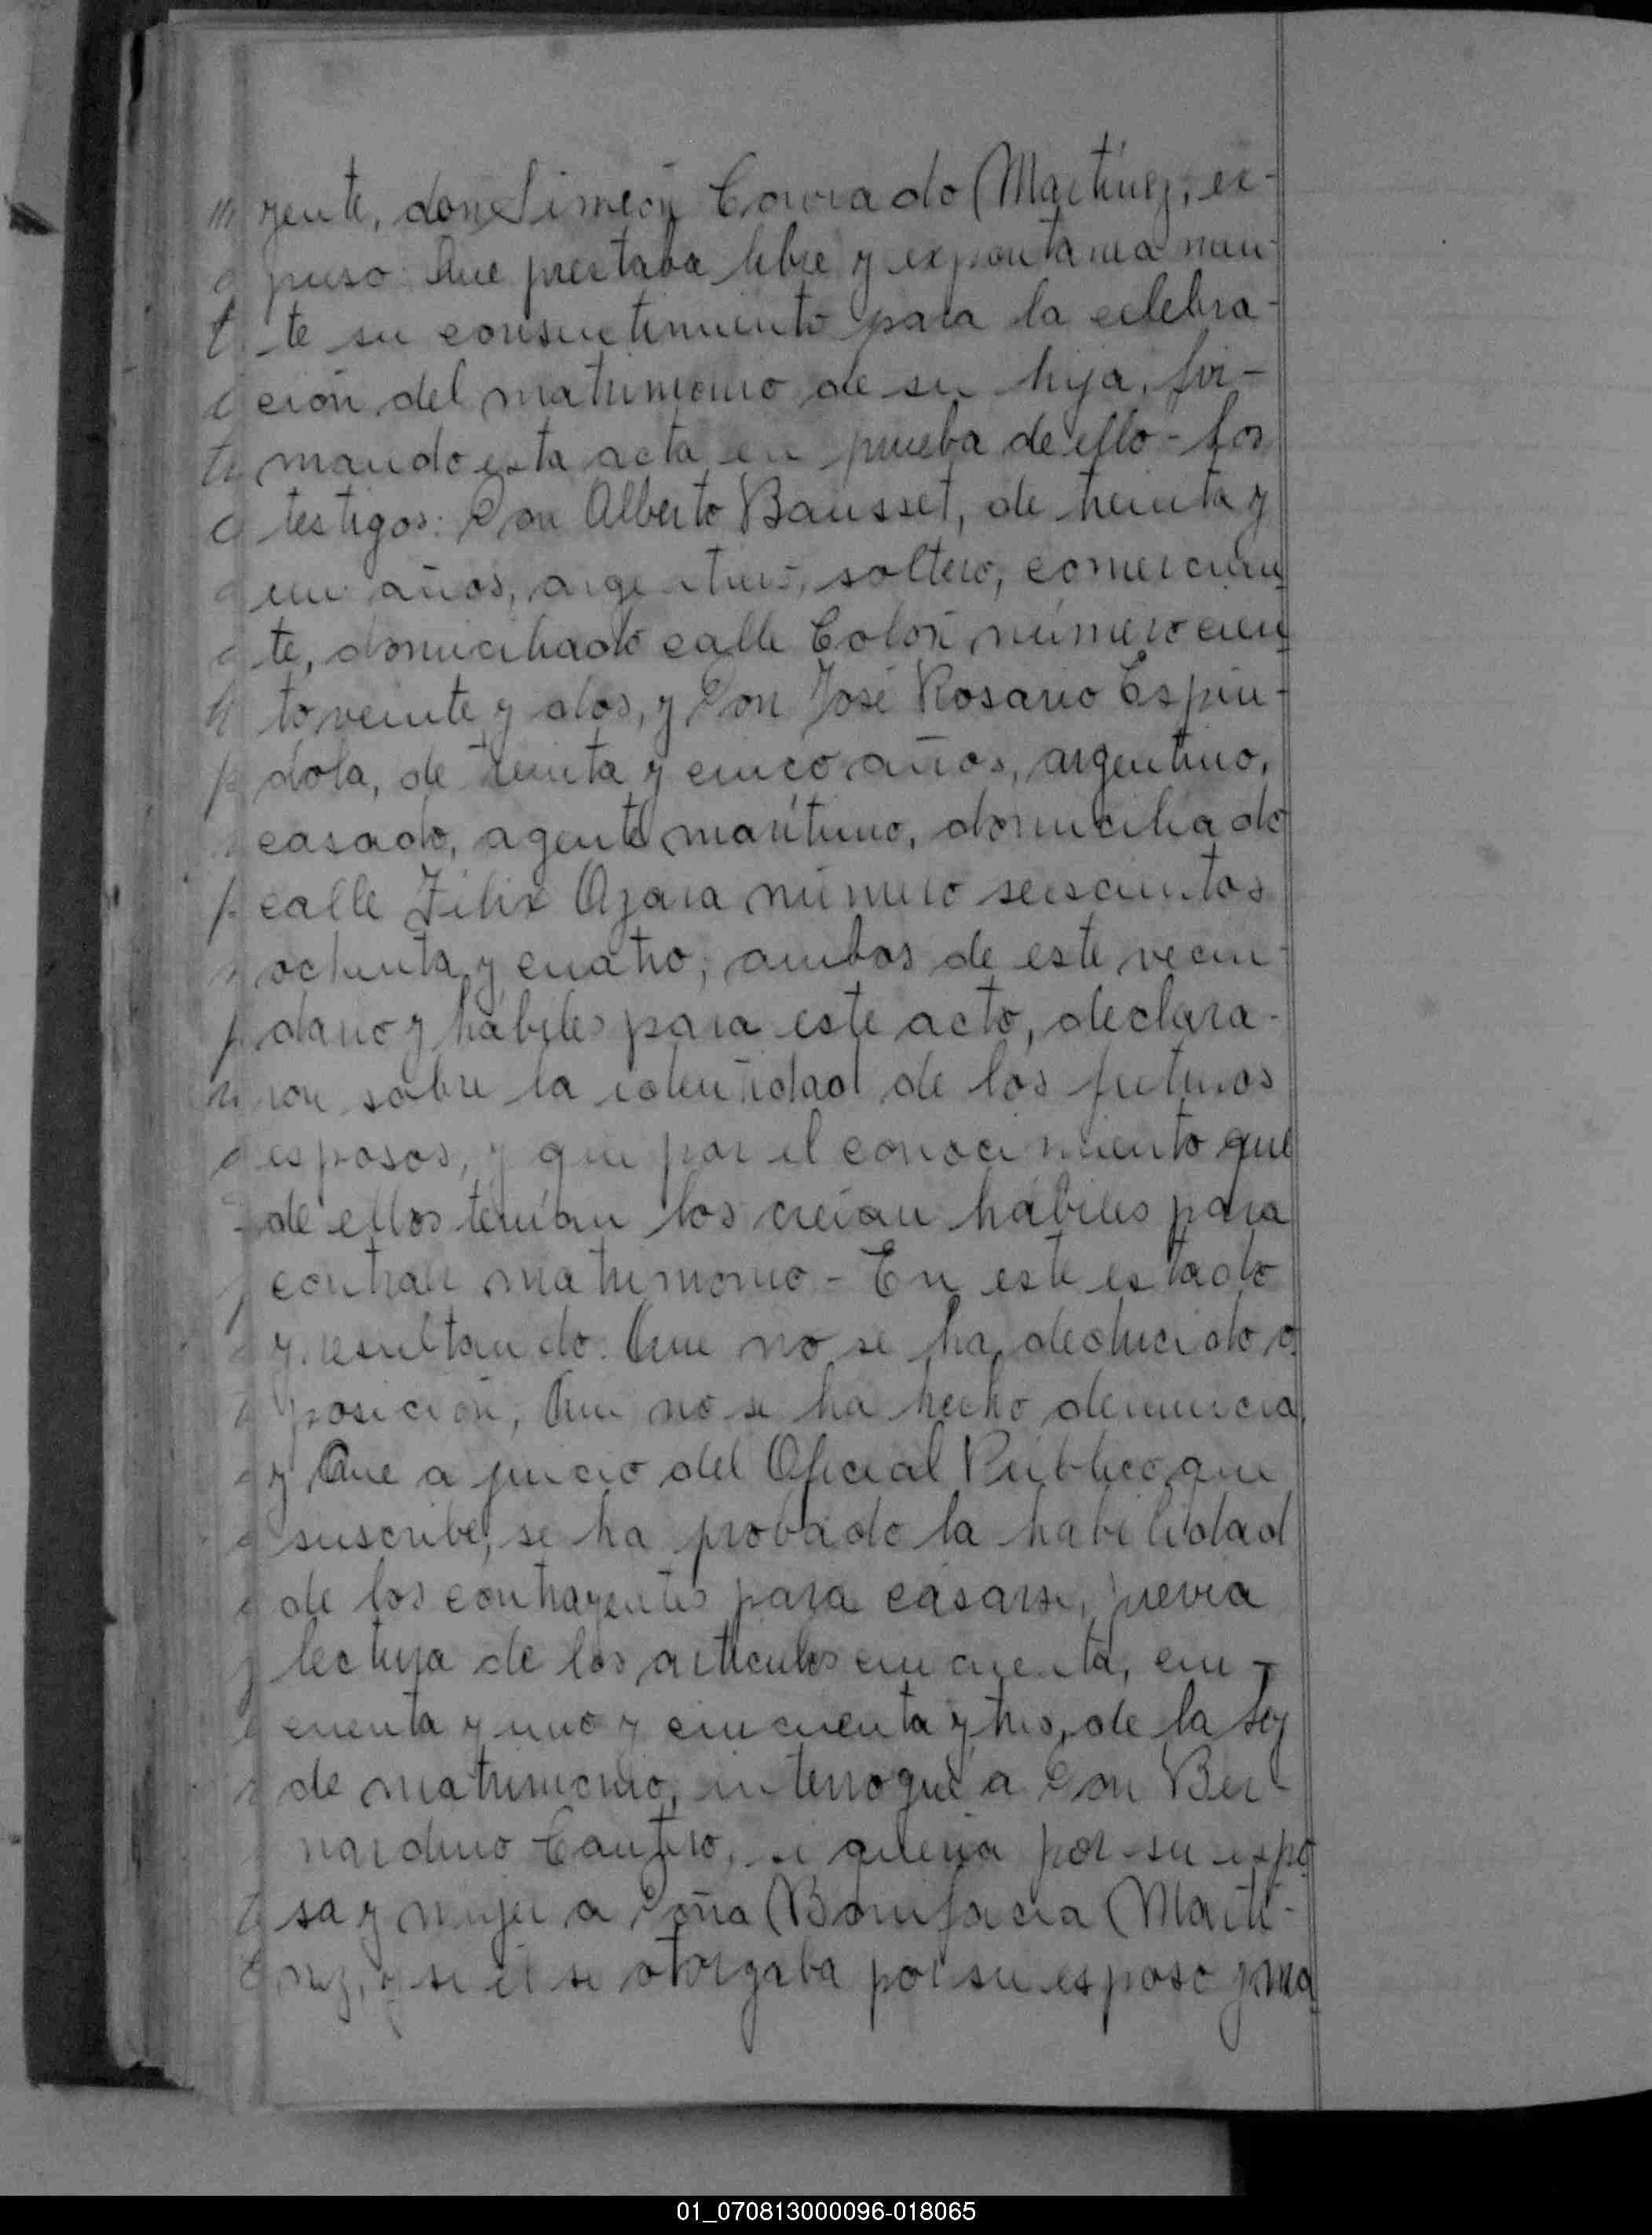 yente, don Simeón Conrado Martínez, ex-
puso: Que prestaba libre y expontanea men-
te su consuctimiento para la celebra-
ción del matrimonio de su hija, fir-
mando esta acta en prueba de ello - Los
testigos: Don Alberto Bausset, de treinta y
un años, argentino, soltero, comercian
te, domiciliado calle Colón número cien
to veinte y dos, y Don José Rosario Espín-
dola, de treinta y cinco años, argentino,
casado, agente marítimo, domiciliado
calle Félix Azara número seiscientos
ochenta y cuatro; ambos de este vecin-
dario y hábiles para este acto, declara-
ron sobre la identidad de los futuros
esposos, y que por el conocimiento que
de ellos tenían los creían hábiles para
contraer matrimonio - En este estado
y resultando: Que no se ha deducido o
posición, Que no se ha hecho denuncia,
y Que a juicio del Oficial Público que
suscribe, se ha probado la habilidad
de los contrayentes para casarse, previa
lectura de los artículos cincuenta, cin-
cuenta y uno y cincuenta y tres, de la Ley
de matrimonio, interrogué a Don Ber-
nardino Cantero, si quería por su espo
sa y mujer a Doña Bonifacia Martí-
nez, y si él se otorgaba por su esposo y ma
01_070813000096-018065